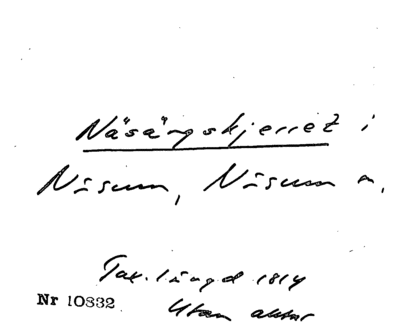 Näsängskjerret i
Näsum, Näsum s.
Tax.längd 1814
Nr 10832
Utan aktnr